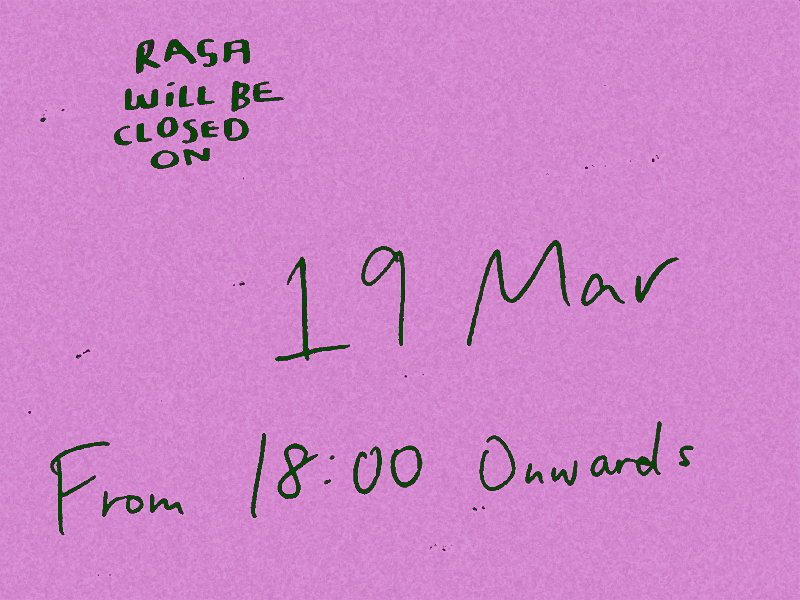 RASA
WiLL BE
CLOSED
ON
19 Mar
From 18:00 Onwards